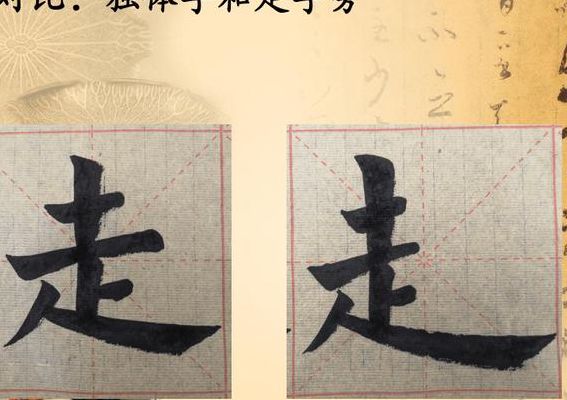 对比：独体字和走字旁
走 走